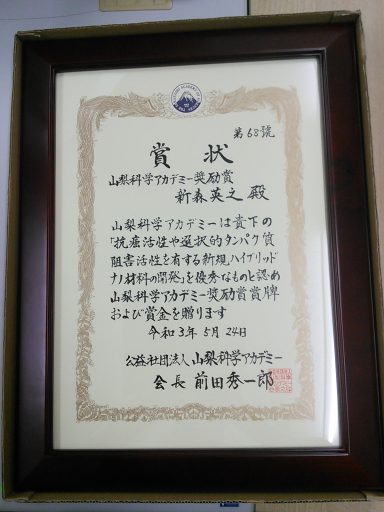 第68號
賞状
山梨科学アカデミー奨励賞
新森英之 殿
山梨科学アカデミーは貴下の
「抗癌活性や選択的タンパク質
阻害活性を有する新規ハイブリッド
ナノ材料の開発」を優秀なものと認め
山梨科学アカデミー奨励賞賞牌
および賞金を贈ります
令和3年5月24日
公益社団法人 山梨科学アカデミー
会長 前田秀一郎